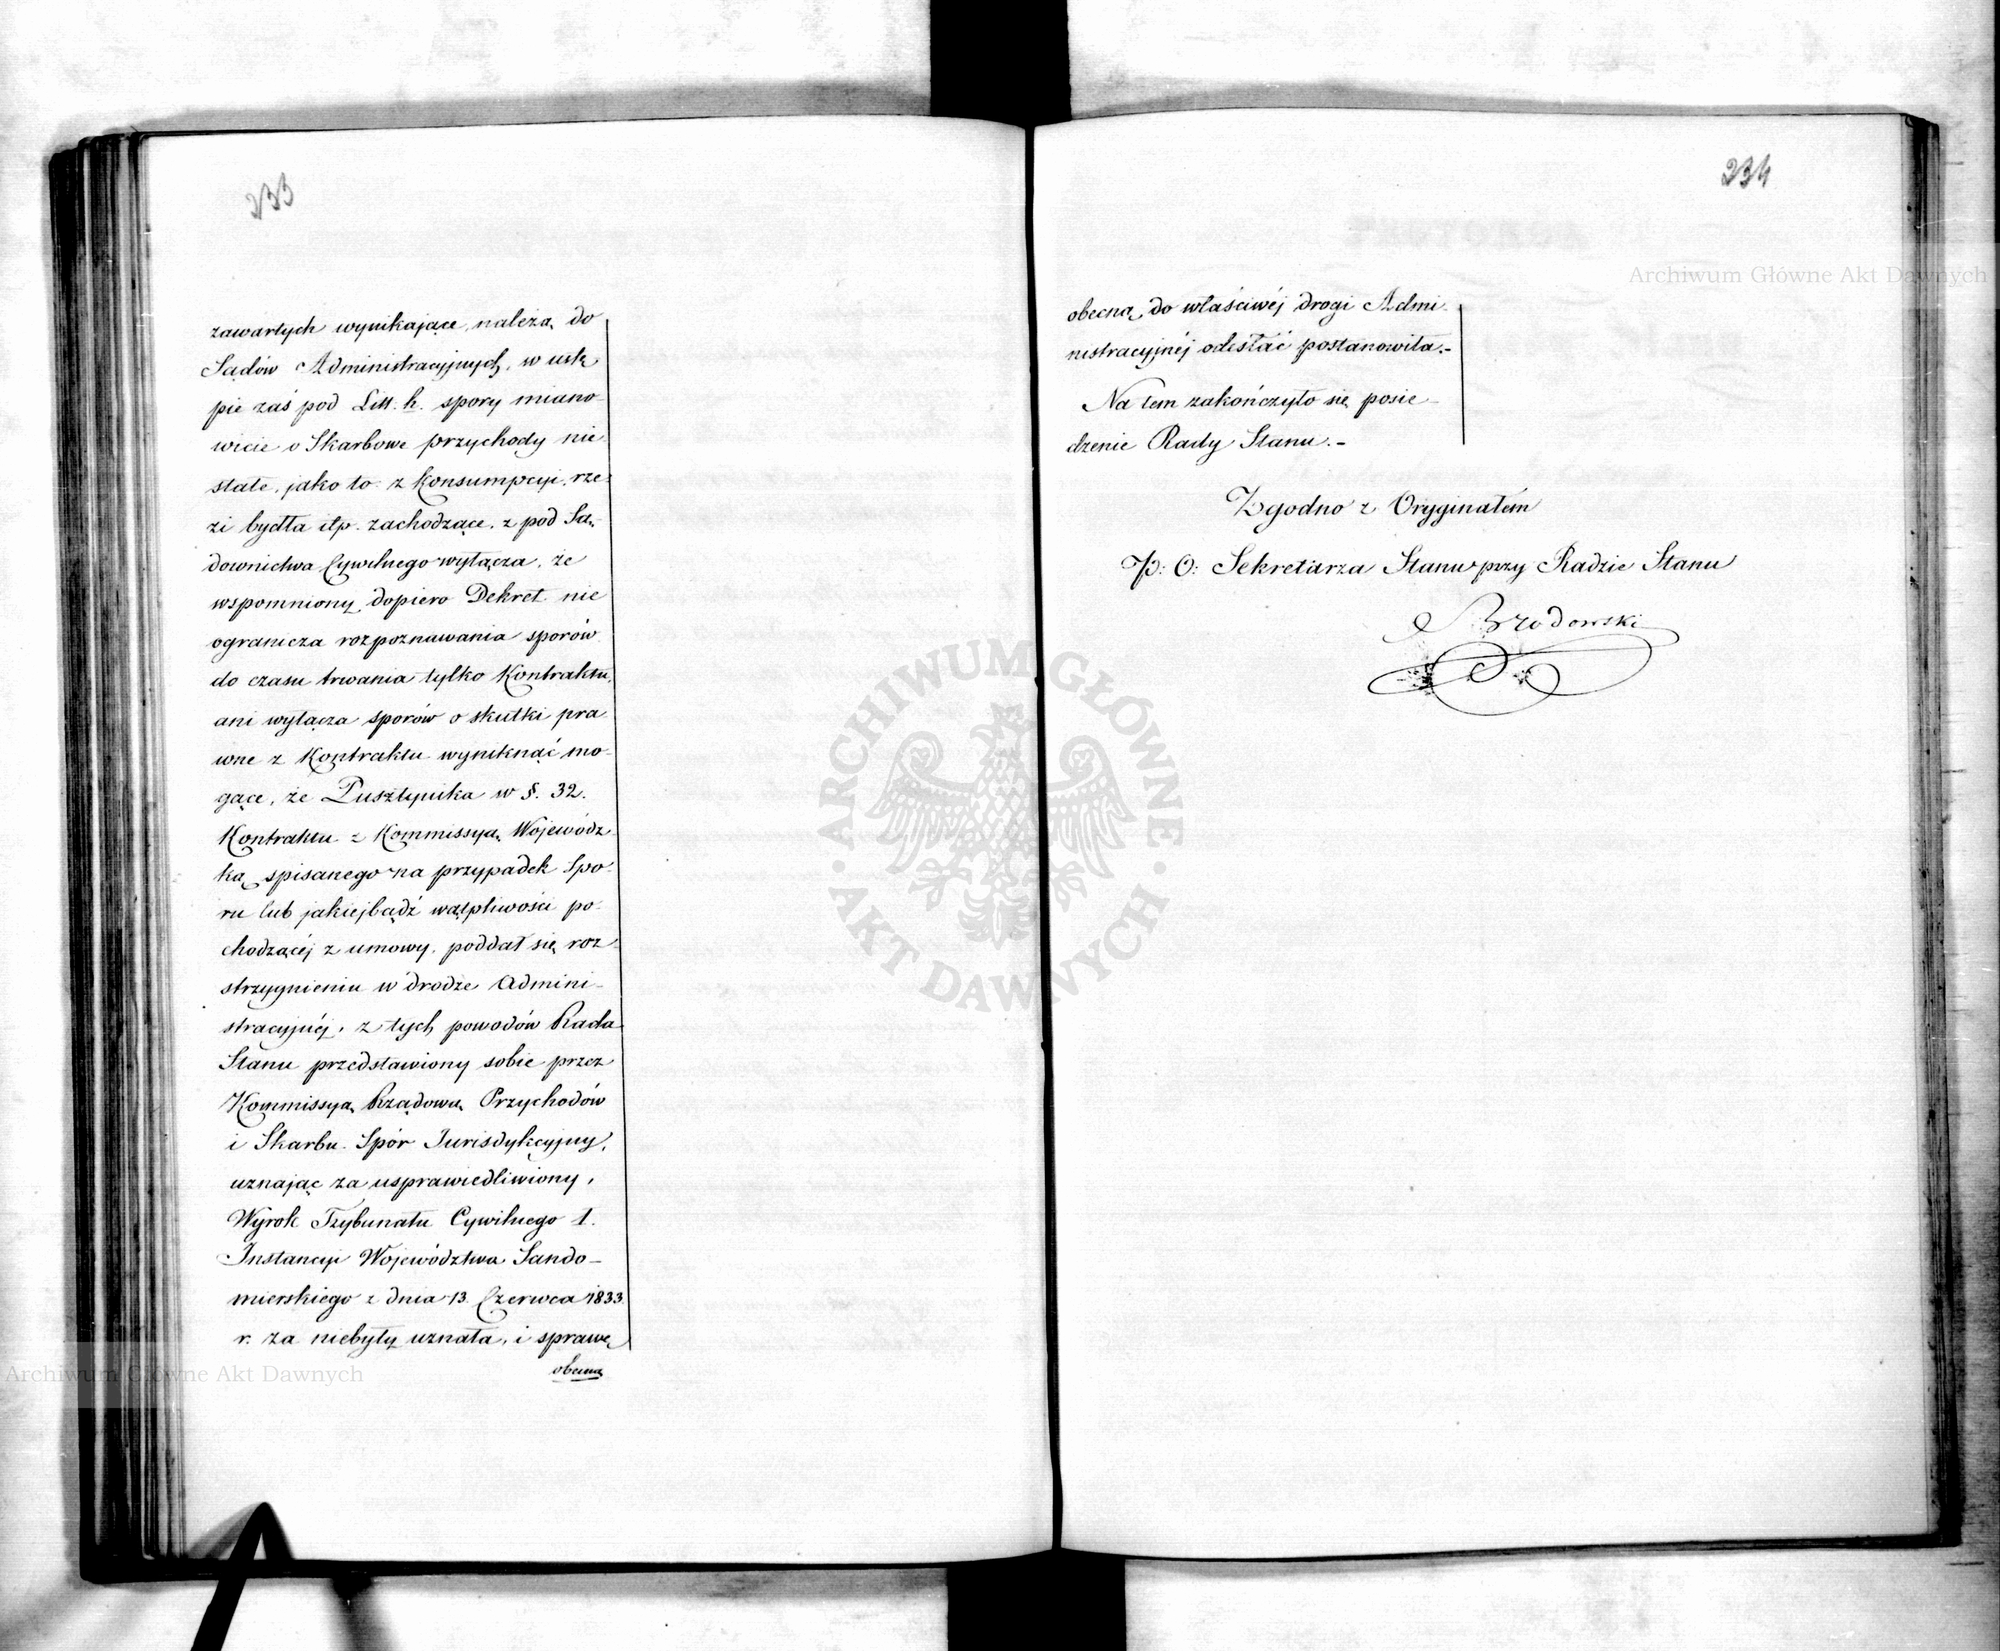 233
zawartych wynikające, należą do
Sądów Administracyjnych, w ustę
pie zaś pod Litt. h. spory miano-
wicie o Skarbowe przychody nie
stałe, jako to z konsumpcyi, rze-
zi bydła itp. zachodzące, z pod Są-
downictwa Cywilnego wyłącza, że
wspomniony dopiero Dekret nie
ogranicza rozpoznawania sporów
do czasu trwania tylko Kontraktu,
ani wyłącza sporów o skutki pra
wne z Kontraktu wyniknąć mo-
gące, że Pusztynika w §. 32.
Kontraktu z Kommissyą Wojewódz
ką spisanego na przypadek Spo-
ru lub jakiejbądź wątpliwości po-
chodzącéj z umowy, poddał się roz-
strzygnieniu w drodze Admini-
stracyjnéj, z tych powodów Rada
Stanu przedstawiony sobie przez
Kommissyą Rządową Przychodów
i Skarbu Spór Jurisdykcyjny,
uznając za usprawiedliwiony,
Wyrok Trybunału Cywilnego 1.
Instancyi Województwa Sando-
mierskiego z dnia 13 Czerwca 1833
r. za niebyły uznała, i sprawę
obecną
234
obecną do właściwéj drogi Admi-
nistracyjnéj odesłać postanowiła.-
Na tem zakończyło się posie-
dzenie Rady Stanu.-
Zgodno z Oryginałem
P: O: Sekretarza Stanu przy Radzie Stanu
Brodowski
Archiwum Główne Akt Dawnych
ARCHIWUM GŁÓWNE · AKT DAWNYCH ·
Archiwum Główne Akt Dawnych